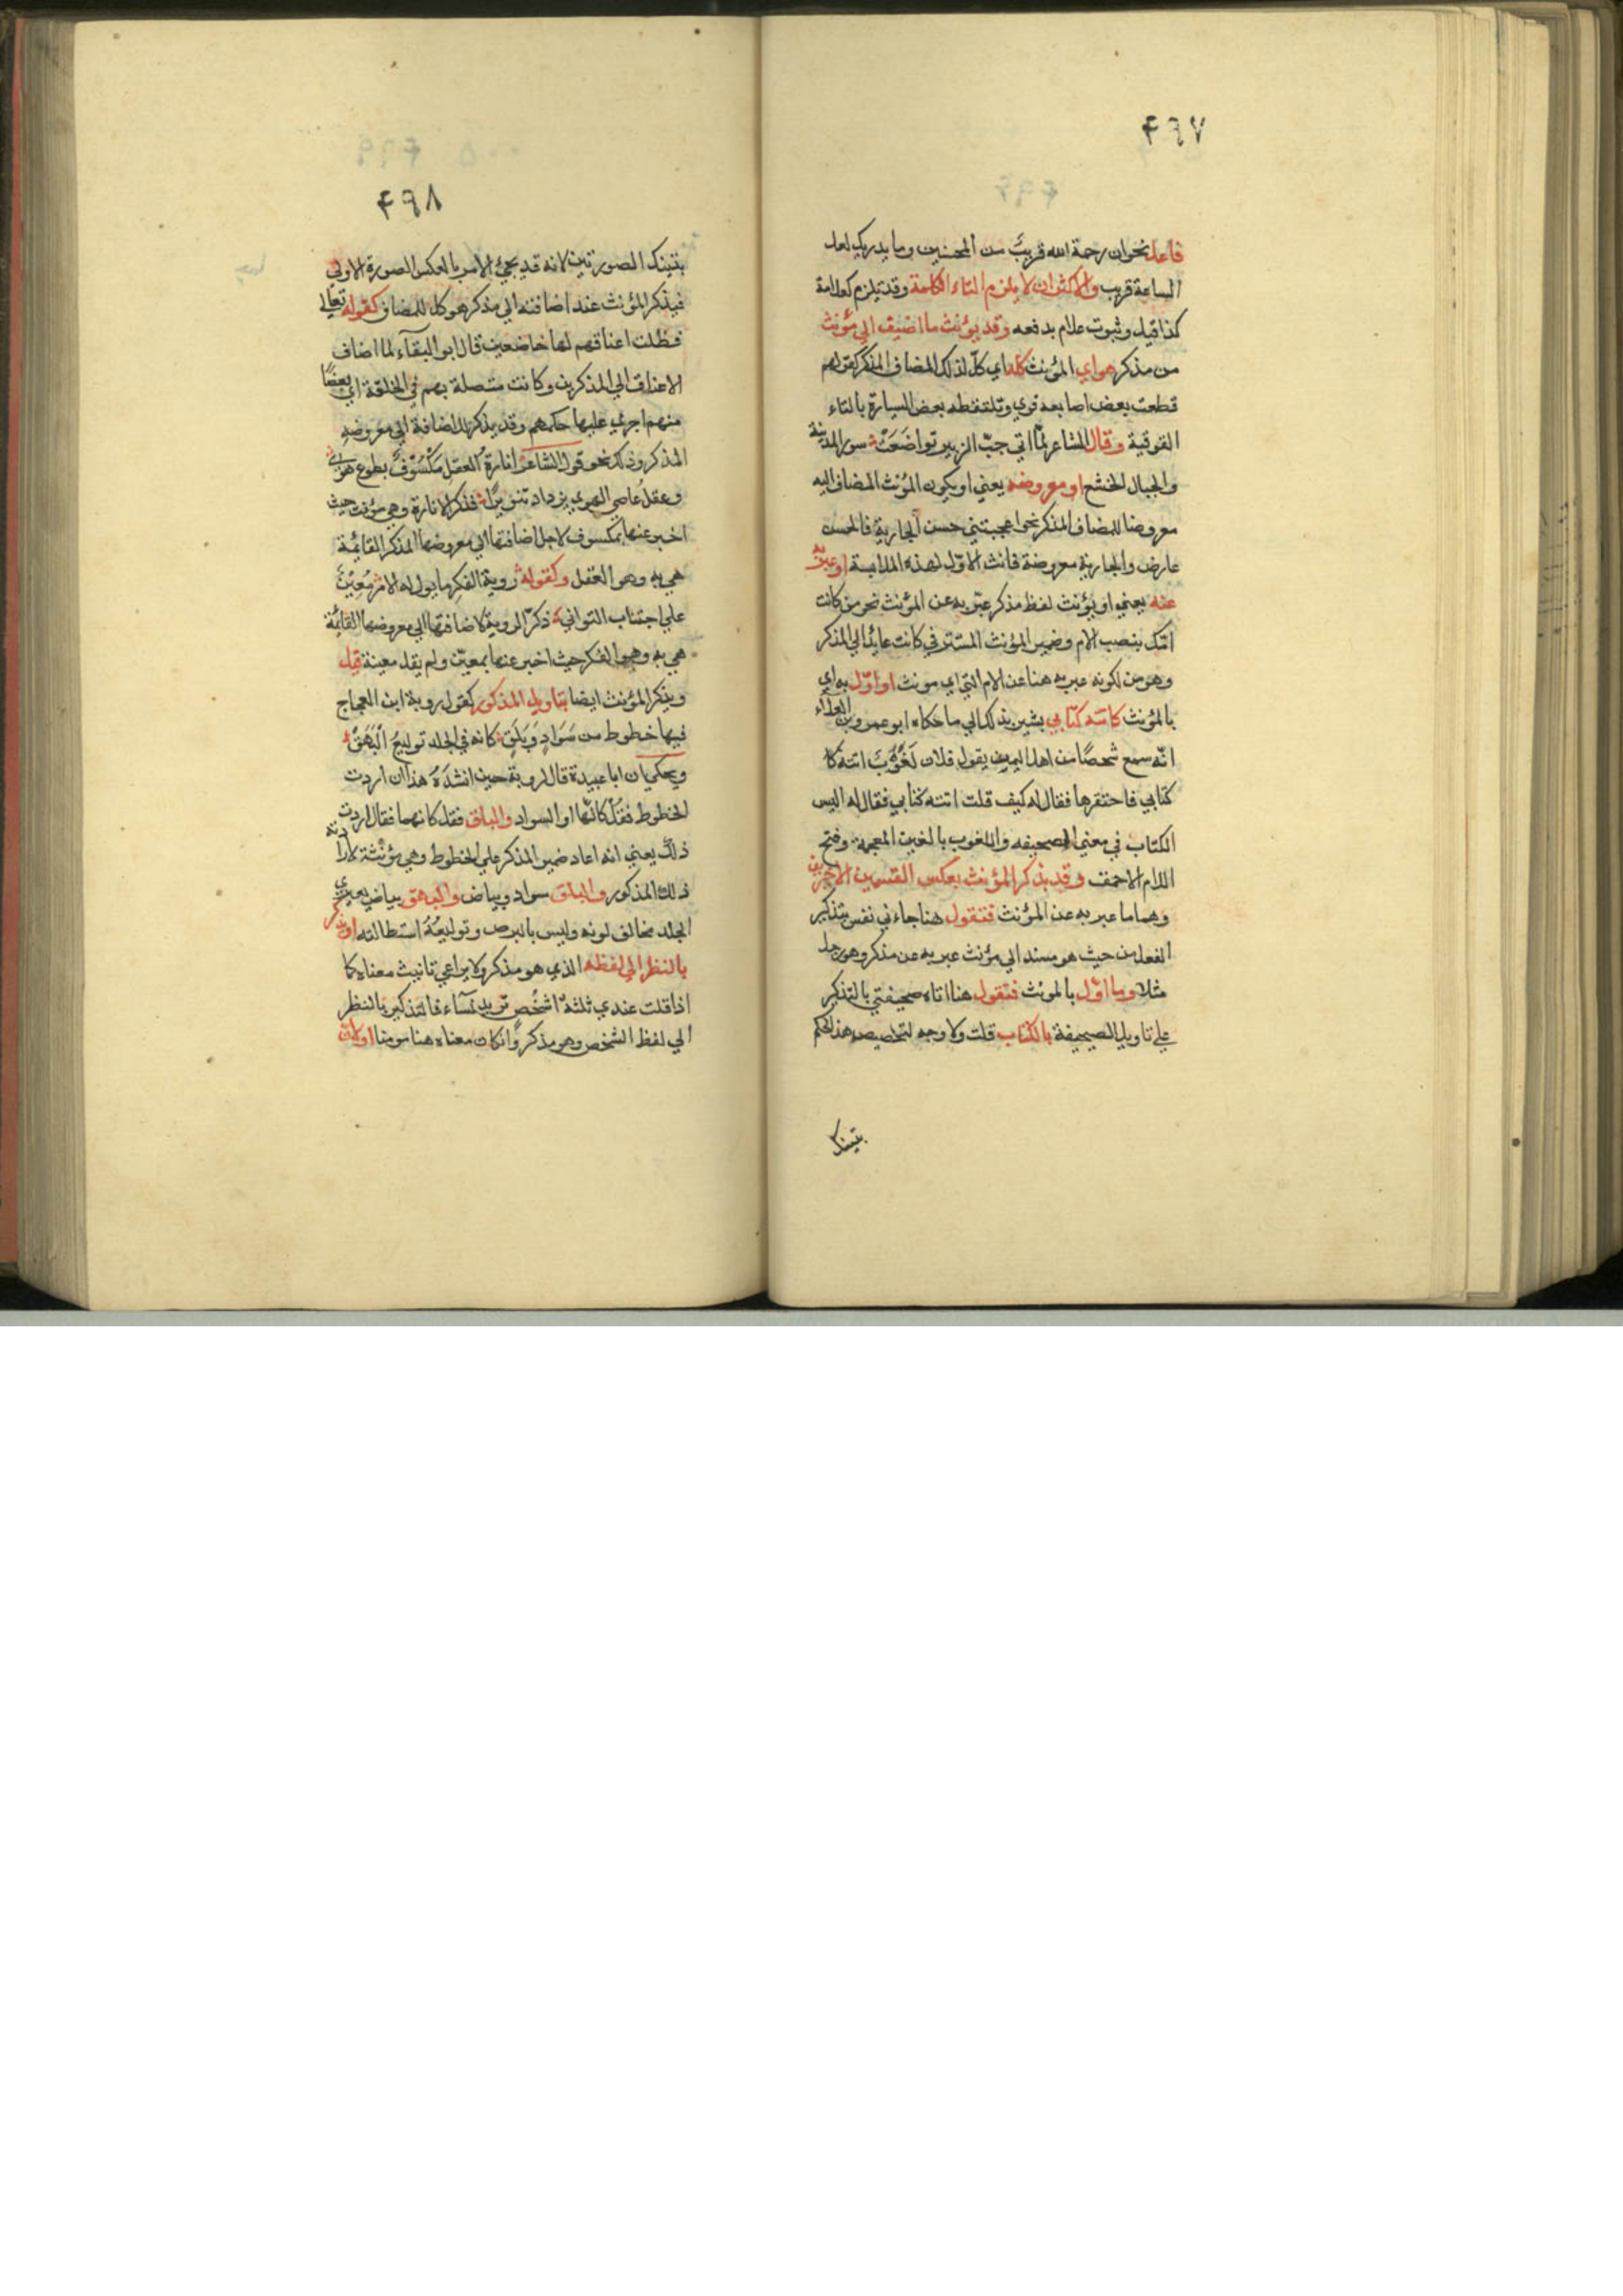 ٤٩٧
فاعل نحو ان رحمة الله قريب من المحسنين وما يدريك لعل
الساعة قريب والاكثر ان لا يلزم التاء الكلمة وقد تلزم كعلامة
كذا قيل وثبوت علام يدفعه وقد يؤنث ما اضيف الي مؤنث
من مذكر هو اي المؤنث كله اي كل لذلك المضاف المذكر كقولهم
قطعت بعض اصابعه قري وتلتقطه بعض السيارة بالتاء
الفوقية وقال الشاعر لما اتي خبر الزبير تواضعت سور المدينة
والجبال الخشع او معروضه يعني او يكون المؤنث المضاف اليه
معروضا للمضاف المذكر نحو اعجبتني حسن الجارية فالحسن
عارض والجارية معروضة فانث الاول لهذه الملابسة او عبر به
عنه يعني او يؤنث لفظ مذكر عبر به عن المؤنث نحو من كانت
امك بنصب الام وضمير المؤنث المستتر في كانت عايد الي المذكر
وهو من لكونه عبر به هنا عن الام التي اي مونث او اول به اي
بالمؤنث كاتته كتابي يشير بذلك الي ما حكاه ابو عمرو بن العلاء
انه سمع شخصا من اهل اليمن يقول فلان لغوب اتته
كتابي فاحتقرها فقال له كيف قلت اتته كتابي فقال له اليس
الكتاب في معني الصحيفه واللغوب بالغين المعجمة وفتح
اللام الاحمق وقد يذكر المؤنث بعكس القسمين الاخيرين
وهما ما عبر به عن المؤنث فتقول هنا جاءني نفس بتذكير
الفعل من حيث هو مسند الي مؤنث عبر به عن مذكر وهو رجل
مثلا وما اول بالمونث فتقول هنا اتاه صحيفتي بالتذكير
علي تاويل الصحيفة بالكتاب قلت ولا وجه لتخصيص هذا الحكم
بتينك
٤٩٨
بتينك الصورتين لانه قد يجئ الامر بالعكس الصورة الاولي
فيذكر المؤنث عند اضافته الي مذكر هو كل للمضاف كقوله تعالي
فظلت اعناقهم لها خاضعين قال ابو البقآء لما اضاف
الاعناق الي المذكرين وكانت متصلة بهم في الخلقة اي بعضا
منهم اجري عليها حكمهم وقد يذكر للاضافة الي معروضه
المذكر وذلك نحو قول الشاعر انارة العقل مكسوف بطوع هوي
وعقل عاصي الهوي يزداد تنويرا فذكر الانارة وهي مؤنث حيث
اخبر عنها بمكسوف لاجل اضافتها الي معروضها المذكر القائمة
هي به وهو العقل وكقوله روية الفكر ما يول له الامر معين
علي اجتناب التواني ذكر الروية لاضافتها الي معروضها القائمة
هي به وهو الفكر حيث اخبر عنها بمعين ولم يقل معينة قيل
ويذكر المؤنث ايضا بتاويل المذكور كقول روبة ابن العجاج
فيها خطوط من سواد وبلق كانه في الجلد توليع البهق
ويحكي ان ابا عبيدة قال لروبة حين انشده هذا ان اردت
الخطوط فقل كانها او السواد والبلق فقل كانهما فقال اردت
ذلك يعني انه اعاد ضمير المذكر علي الخطوط وهي مؤنثة لارادته
ذلك المذكور والبلق سواد وبياض والبهق بياض يعتري
الجلد مخالف لونه وليس بالبرص وتوليعه استطالته او يذكر
بالنظر الي لفظه الذي هو مذكر ولا يراعي تانيث معناه كما
اذا قلت عندي ثلثة اشخص تريد نسآء فالتذكير بالنظر
الي لفظ الشخص وهو مذكر وانكان معناه هنا مونثا اولان